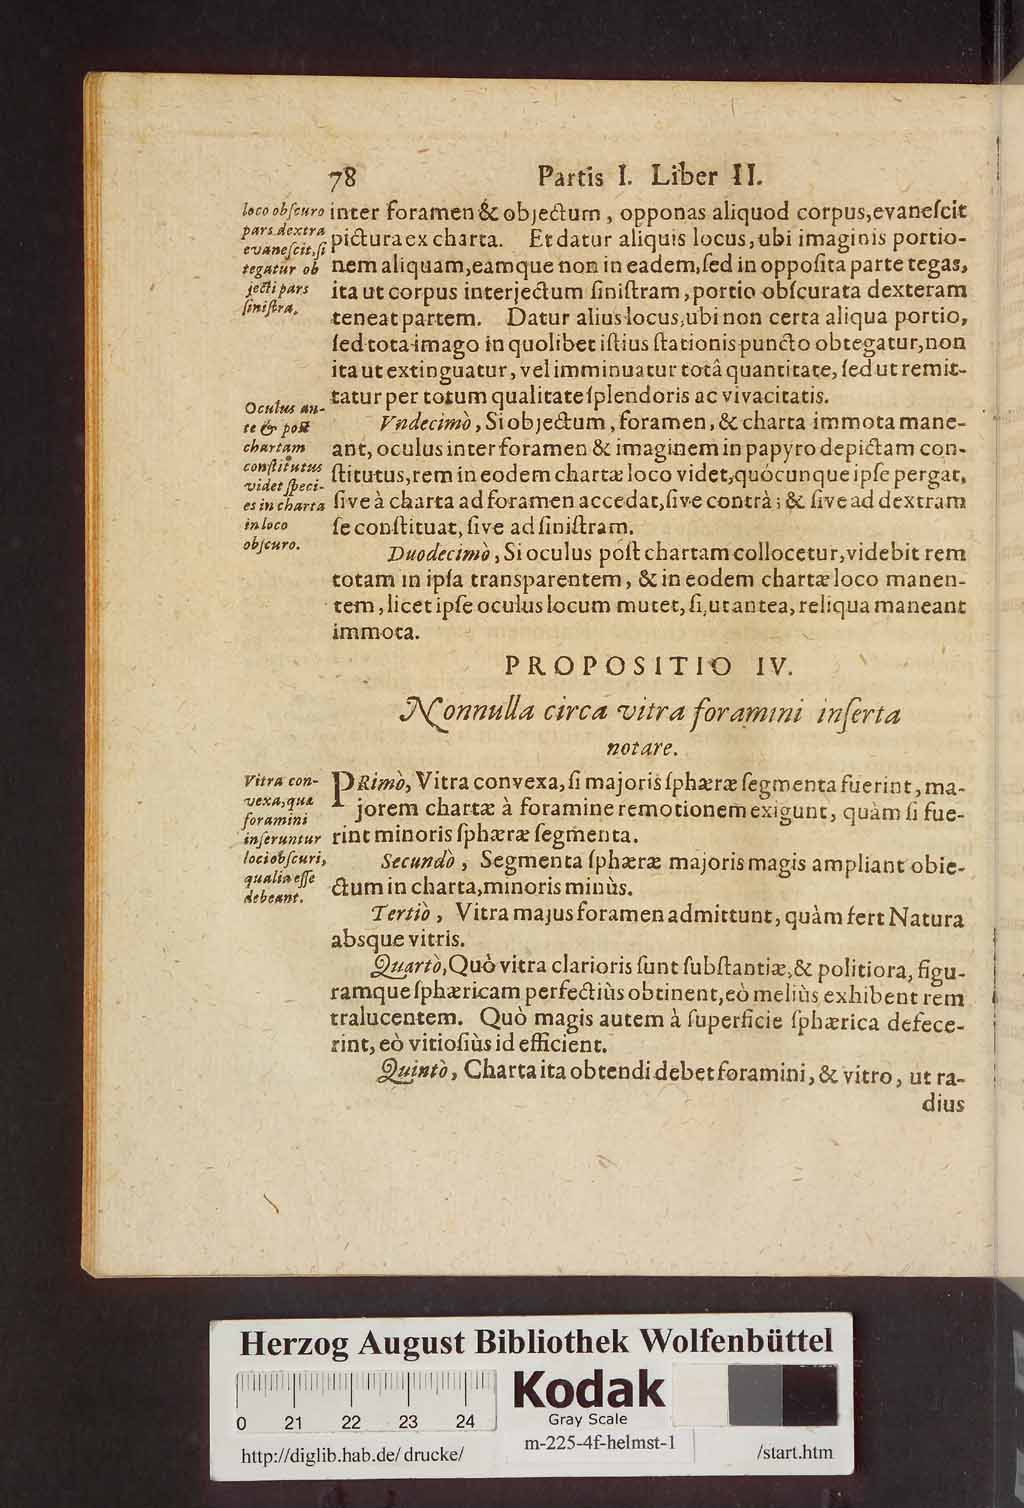 78 Partis I. Liber II.
loco obſcuro
pars dextra
evaneſcit, ſi
tegatur ob
jecti pars
ſiniſtra.
inter foramen & objectum, opponas aliquod corpus, evaneſcit
pictura ex charta. Et datur aliquis locus, ubi imaginis portio-
nem aliquam, eamque non in eadem, ſed in oppoſita parte tegas,
ita ut corpus interjectum ſiniſtram, portio obſcurata dexteram
teneat partem. Datur alius locus, ubi non certa aliqua portio,
ſed tota imago in quolibet iſtius ſtationis puncto obtegatur, non
ita ut extinguatur, vel imminuatur totâ quantitate, ſed ut remit-
tatur per totum qualitate ſplendoris ac vivacitatis.
Oculus an-
te & poſt
chartam
conſtitutus
videt ſpeci-
es in charta
in loco
obſcuro.
Vndecimò, Si objectum, foramen, & charta immota mane-
ant, oculus inter foramen & imaginem in papyro depictam con-
ſtitutus, rem in eodem chartæ loco videt, quócunque ipſe pergat,
ſive à charta ad foramen accedat, ſive contrà; & ſive ad dextram
ſe conſtituat, ſive ad ſiniſtram.
Duodecimò, Si oculus póſt chartam collocetur, videbit rem
totam in ipſa transparentem, & in eodem chartæ loco manen-
tem, licet ipſe oculus locum mutet, ſi, ut antea, reliqua maneant
immota.
PROPOSITIO IV.
Nonnulla circa vitra foramini inſerta
notare.
Vitra con-
vexa, quæ
foramini
inſeruntur
loci obſcuri,
qualia eſſe
debeant.
PRimò, Vitra convexa, ſi majoris ſphæræ ſegmenta fuerint, ma-
jorem chartæ à foramine remotionem exigunt, quàm ſi fue-
rint minoris ſphæræ ſegmenta.
Secundò, Segmenta ſphæræ majoris magis ampliant obie-
ctum in charta, minoris minùs.
Tertiò, Vitra majus foramen admittunt, quàm fert Natura
absque vitris.
Quartò, Quò vitra clarioris ſunt ſubſtantiæ, & politiora, figu-
ramque ſphæricam perfectiùs obtinent, eò meliùs exhibent rem
tralucentem. Quò magis autem à ſuperficie ſphærica defece-
rint, eò vitioſiùs id efficient.
Quintò, Charta ita obtendi debet foramini, & vitro, ut ra-
dius
Herzog August Bibliothek Wolfenbüttel
0 21 22 23 24
Kodak
Gray Scale
http://diglib.hab.de/drucke/
m-225-4f-helmst-1
/start.htm